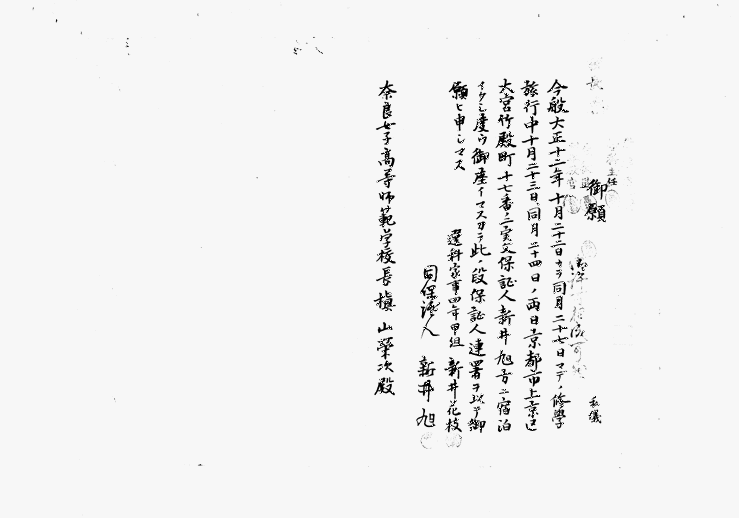 御願
私儀
今般大正十二年十月二十二日ヨリ同月二十七日マデノ修學
旅行中十月二十三日、同月二十四日ノ両日京都市上京区
大宮竹殿町十七番ノ二実父保証人新井旭方ニ宿泊
イタシ度ウ御座イマスカラ此ノ段保証人連署ヲ以テ御
願ヒ申シマス
選科家事四年甲組 新井花枝
同保證人 新井旭
奈良女子高等師範学校長槙山榮次殿
主任